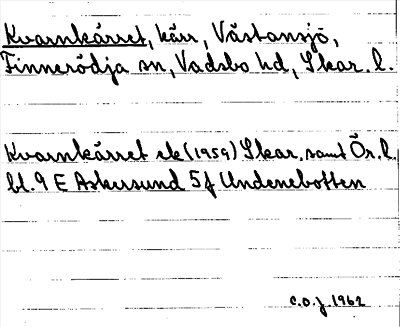 Kvarnkärret, kärr, Västansjö,
Finnerödja sn, Vadsbo hd, Skar. l.
Kvarnkärret ek (1959) Skar. samt Ör. l.
bl. 9 E Askersund 5f Undenebotten
C.O.J. 1962